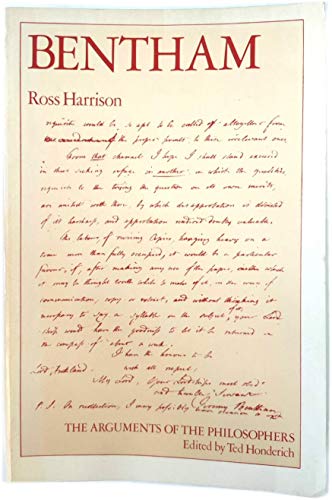 BENTHAM
Ross Harrison
requisite would be, so apt to be called off altogether from
the proper points to these irrelevant ones.
From that channel I hope I shall stand excused
in thus seeking refuge in another in which the
requisite to the trying the question on its own merits,
are united with those, by which disapprobation is divested
of its harshness, and approbation rendered doubly valuable.
The labour of revising Copies hanging heavy on a
time more than fully occupied, it would be a particular
favour, if, after making any use of the paper, under which
it may be thought worth while to make of it, in the way of
communication, copy or extract, and without thinking it
necessary to say a syllable on the subject, your Lord
ship would have the goodness to let it be returned in
the compass of about a week.
I have the honour to be
with all respect,
My Lord, Your Lordships most obed
and humble Servant
P.S. On recollection, I may possibly Jeremy Bentham
THE ARGUMENTS OF THE PHILOSOPHERS
Edited by Ted Honderich